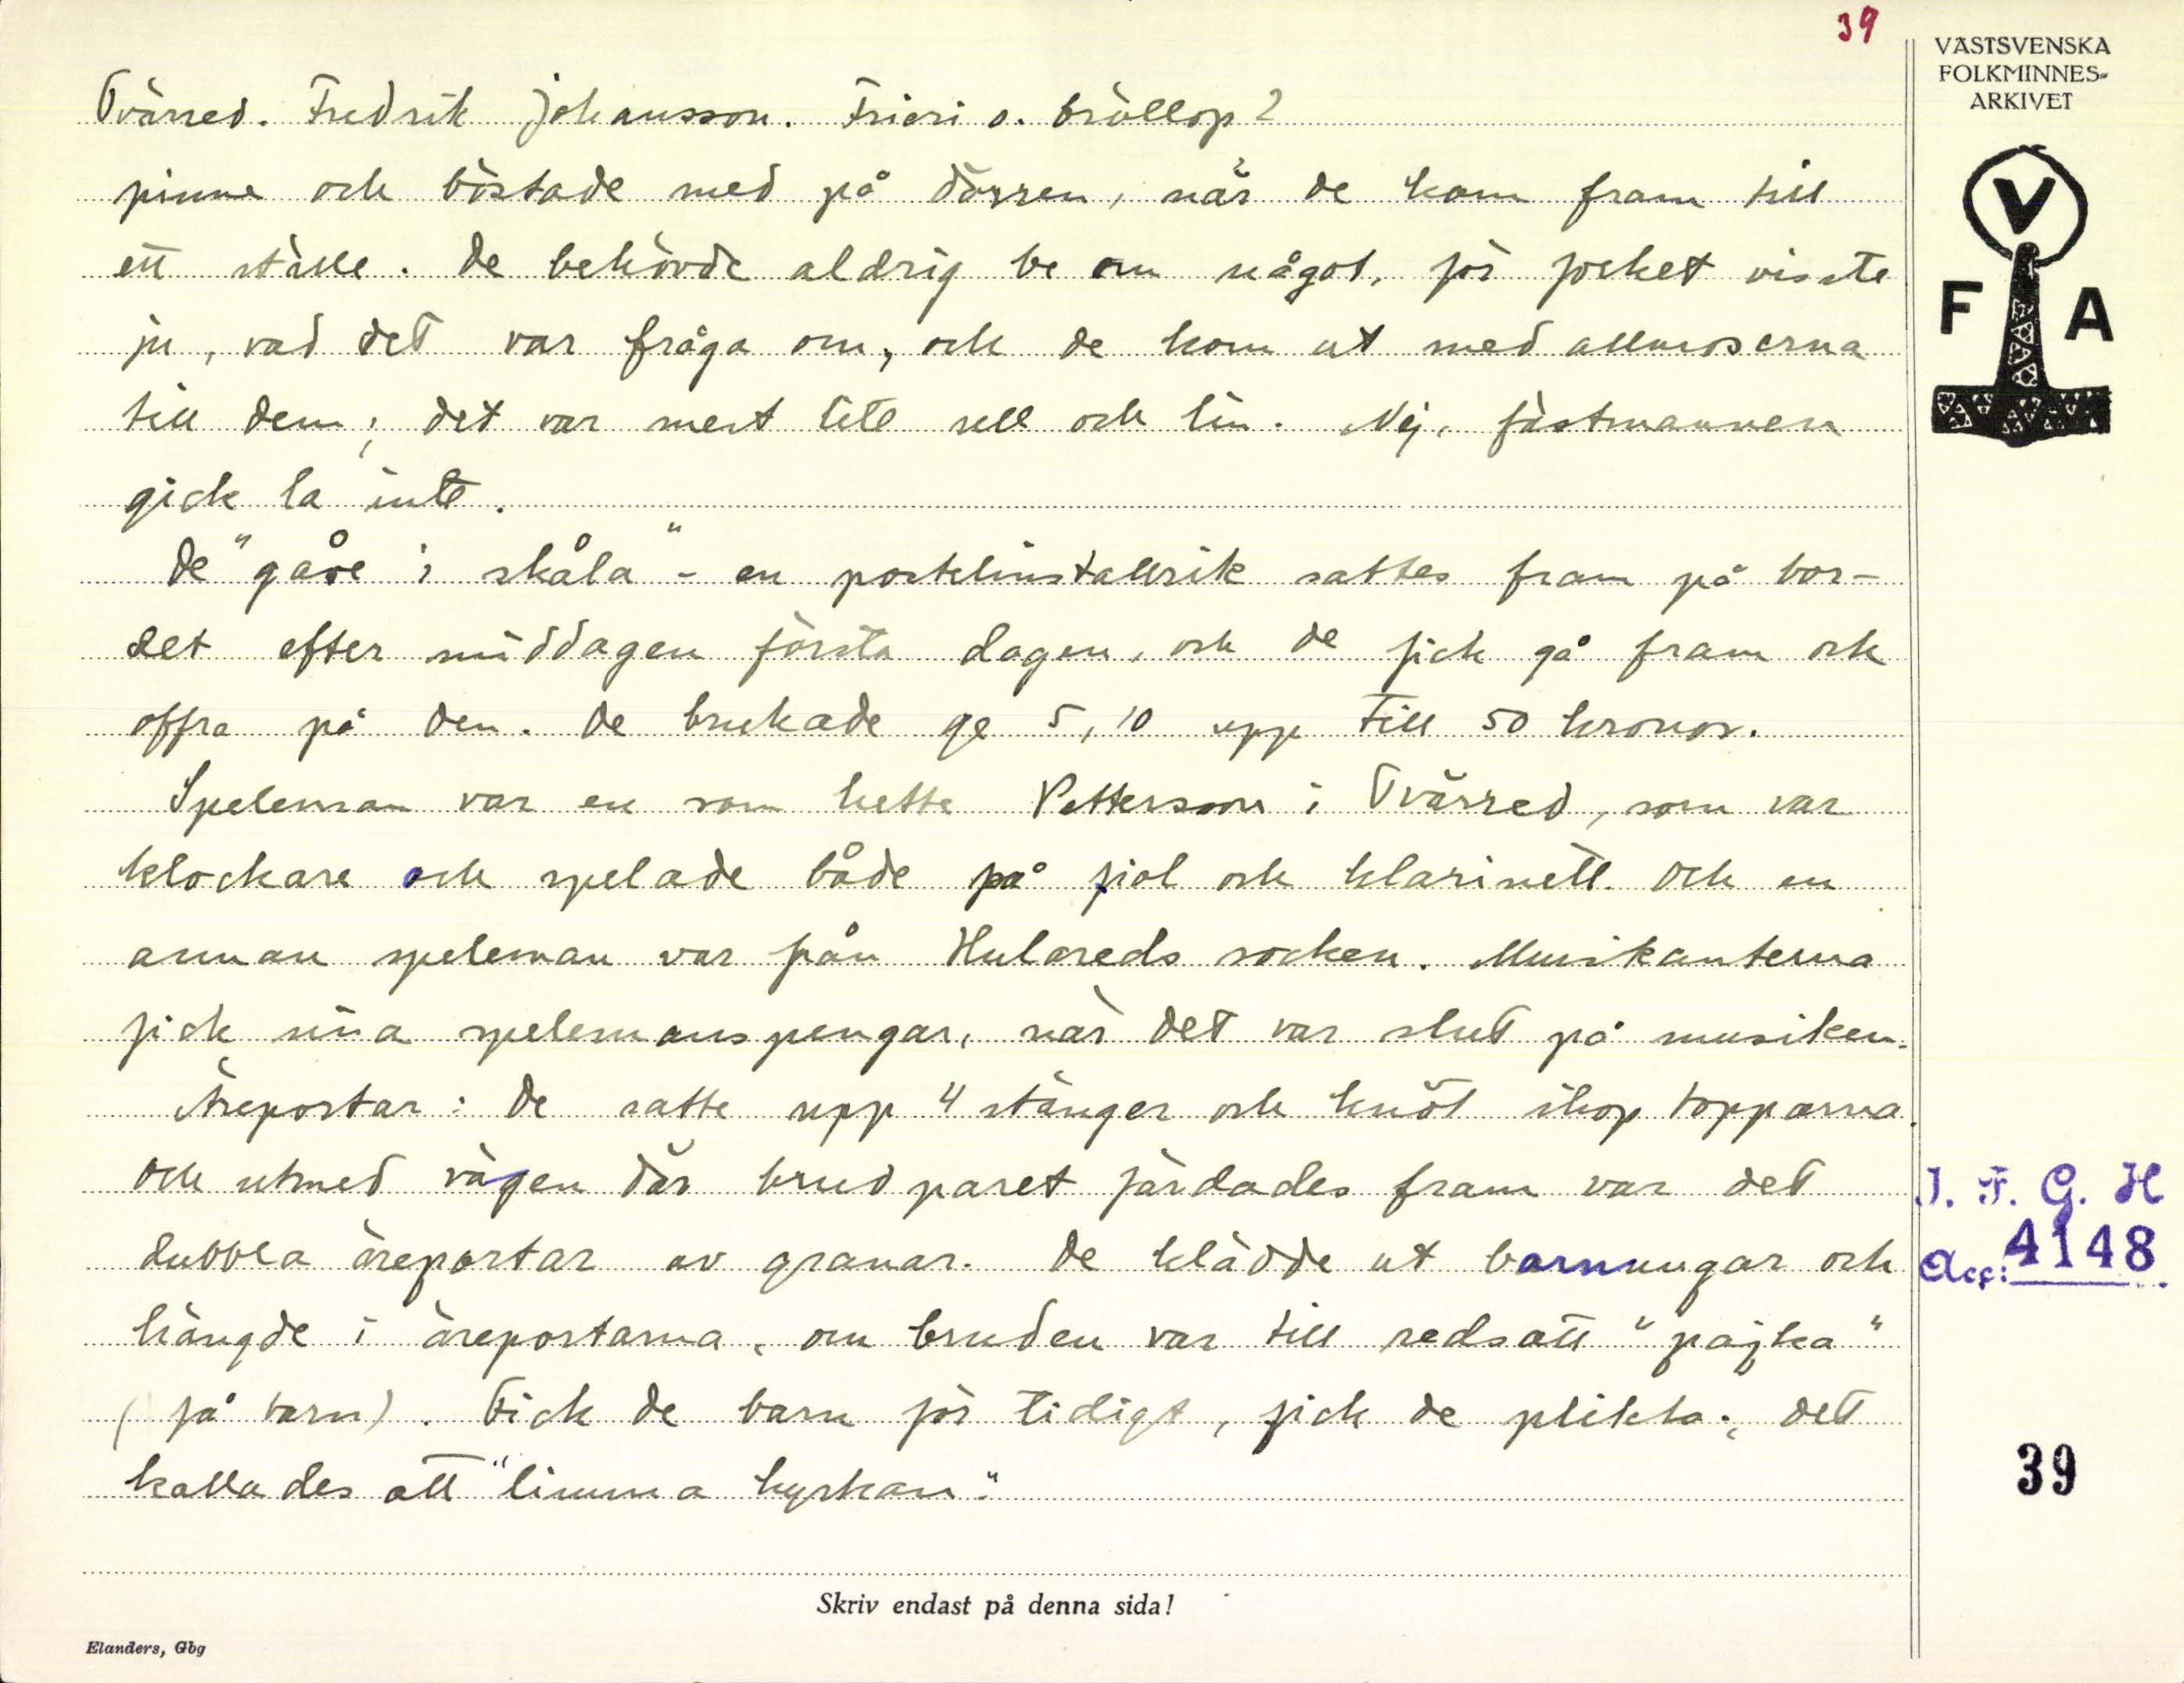 39
VÄSTSVENSKA
FOLKMINNES-
ARKIVET
V
F A
Tvärred. Fredrik Johansson. Frieri o. bröllop 2
pinne och böstade med på dörren, när de kom fram till
ett ställe. De behövde aldrig be om något, för folket visste
ju, vad det var fråga om, och de kom ut med allmoserna
till dem; det var mest lite ull och lin. Nej, fästmannen
gick la inte.
De "gåve i skåla" - en postlinstallrik sattes fram på bor-
det efter middagen första dagen, och de fick gå fram och
offra på den. De brukade ge 5, 10 upp till 50 kronor.
Speleman var en som hette Pettersson i Tvärred, som var
klockare och spelade både på fiol och klarinett. Och en
annan speleman var från Hulareds socken. Musikanterna
fick sina spelemanspengar, när det var slut på musiken.
Äreportar: De satte upp 4 stänger och knöt ihop topparna.
Och utmed vägen där brudparet färdades fram var det
dubbla äreportar av granar. De klädde ut barnungar och
hängde i äreportarna, om bruden var till redsatt "pajka"
(få barn). Fick de barn för tidigt, fick de plikta; det
kallades att "limma kyrkan."
I. F. G. H
Acc: 4148
39
Skriv endast på denna sida!
Elanders, Gbg